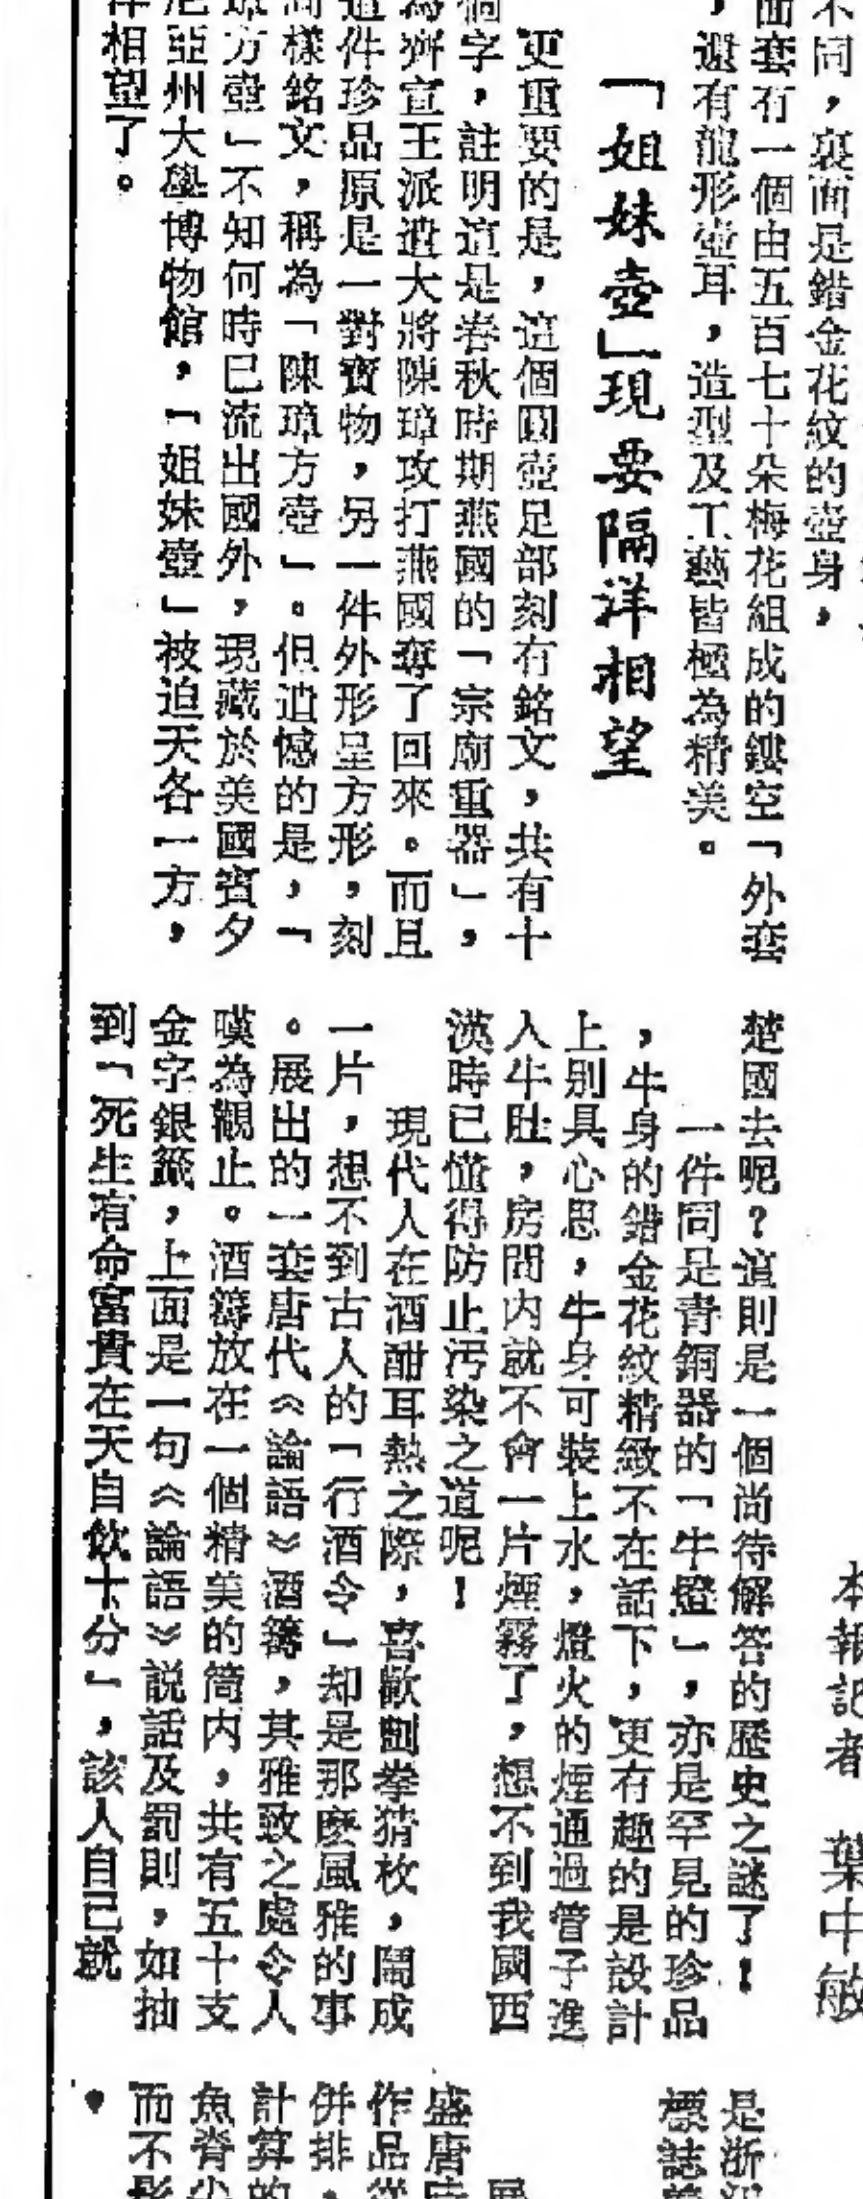 不同，裏面是錯金花紋的壺身，
面套有一個由五百七十朵梅花組成的鏤空「外套
，還有龍形壺耳，造型及工藝皆極為精美。
「姐妹壺」現要隔洋相望
更重要的是，這個圓壺足部刻有銘文，共有十
個字，註明這是春秋時期燕國的「宗廟重器」，
為齊宣王派遣大將陳璋攻打燕國奪了回來。而且
這件珍品原是一對寶物，另一件外形呈方形，刻
同樣銘文，稱為「陳璋方壺」。但遺憾的是，「
璋方壺」不知何時已流出國外，現藏於美國賓夕
尼亞州大學博物館，「姐妹壺」被迫天各一方，
洋相望了。
本報記者 葉中敏
楚國去呢？這則是一個尚待解答的歷史之謎了！
一件同是青銅器的「牛燈」，亦是罕見的珍品
，牛身的錯金花紋精緻不在話下，更有趣的是設計
上別具心思，牛身可裝上水，燈火的煙通過管子進
入牛肚，房間內就不會一片煙霧了，想不到我國西
漢時已懂得防止污染之道呢！
現代人在酒酣耳熱之際，喜歡劃拳猜枚，鬧成
一片，想不到古人的「行酒令」却是那麽風雅的事
。展出的一套唐代《論語》酒籌，其雅致之處令人
嘆為觀止。酒籌放在一個精美的筒内，共有五十支
金字銀籤，上面是一句《論語》説話及罰則，如抽
到「死生有命富貴在天自飲十分」，該人自己就
是浙
標誌
展
盛唐時
作品從
併排，
計算的
魚脊尖
而不